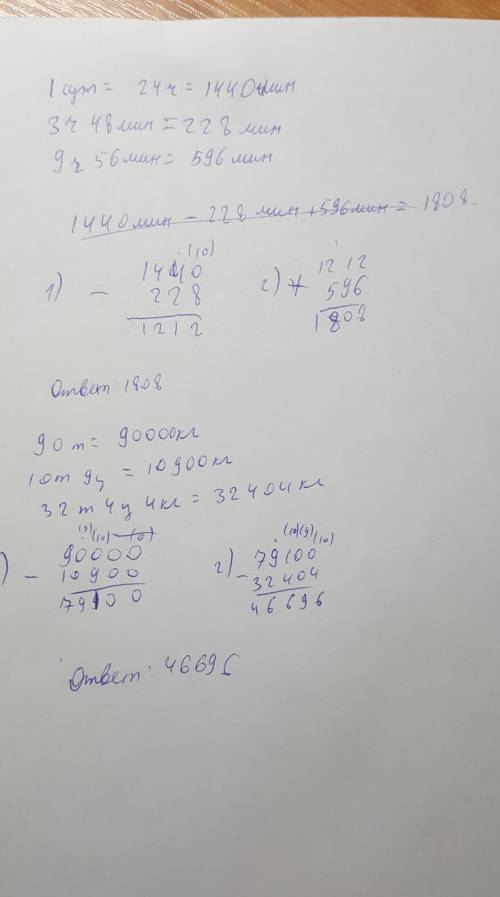 1 сут = 24 ч = 1440 мин
3 ч 48 мин = 228 мин
9 ч 56 мин = 596 мин
1440 мин - 228 мин + 596 мин = 1808.
(10)
1) - 1440
228
1212
2) + 1212
596
1808
Ответ: 1808
90 т = 90000 кг
10 т 9 ц = 10900 кг
32 т 4 ц 4 кг = 32404 кг
(9) (10) (0)
) - 90000
10900
79100
(10) (9) (10)
2) - 79100
32404
46696
Ответ: 46696